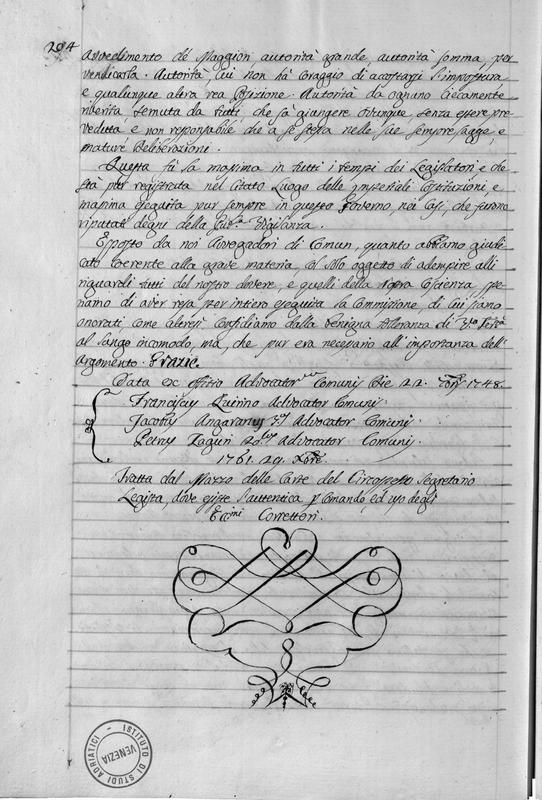 204
avvedimento de' Maggiori autorità grande, autorità somma, per
vendicarla. Autorità, cui non hà coraggio di accostarsi l'impostura
e qualunque altra rea Affizione. Autorità da ognuno ciecamente
riverita, temuta da tutti, che sà giungere ovunque, senza essere pre-
veduta, e non responsabile che a se stessa nelle sue sempre sagge, e
mature deliberazioni.
Questa fù la massima in tutti i tempi dei Legislatori, e che
stà pur registrata nel citato Luogo delle Imperiali Costituzioni, e
massima eseguita pur sempre in questo Governo, nei casi, che furono
riputati degni della Pub.a Vigilanza.
Esposto da noi Avvogadori di Comun, quanto abbiamo giudi-
cato coerente alla grave materia, al solo oggetto di adempire alli
riguardi tutti del nostro dovere, e quelli della nostra Coscienza, spe-
riamo di aver resa per intiero eseguita la Commissione, di cui siamo
onorati come altresì confidiamo dalla benigna tolleranza di
al lungo incomodo, ma, che pur era necessario all'importanza dell'
Argomento. Grazie.
Data ex Offitio Advocator Comunis Die 22. 1748.
Franciscus Quirino Advocator Comunis.
Jacobus Angaranus Advocator Comunis.
Petrus Zaguri Advocator Comunis.
1761. 29. Xbre.
Tratta dal Mazzo delle Carte del Circospetto Segretario
Legista, dove esiste l'autentica p comando, ed uso degli
Ecc.mi Correttori.
ISTITUTO DI STUDI ADRIATICI - VENEZIA